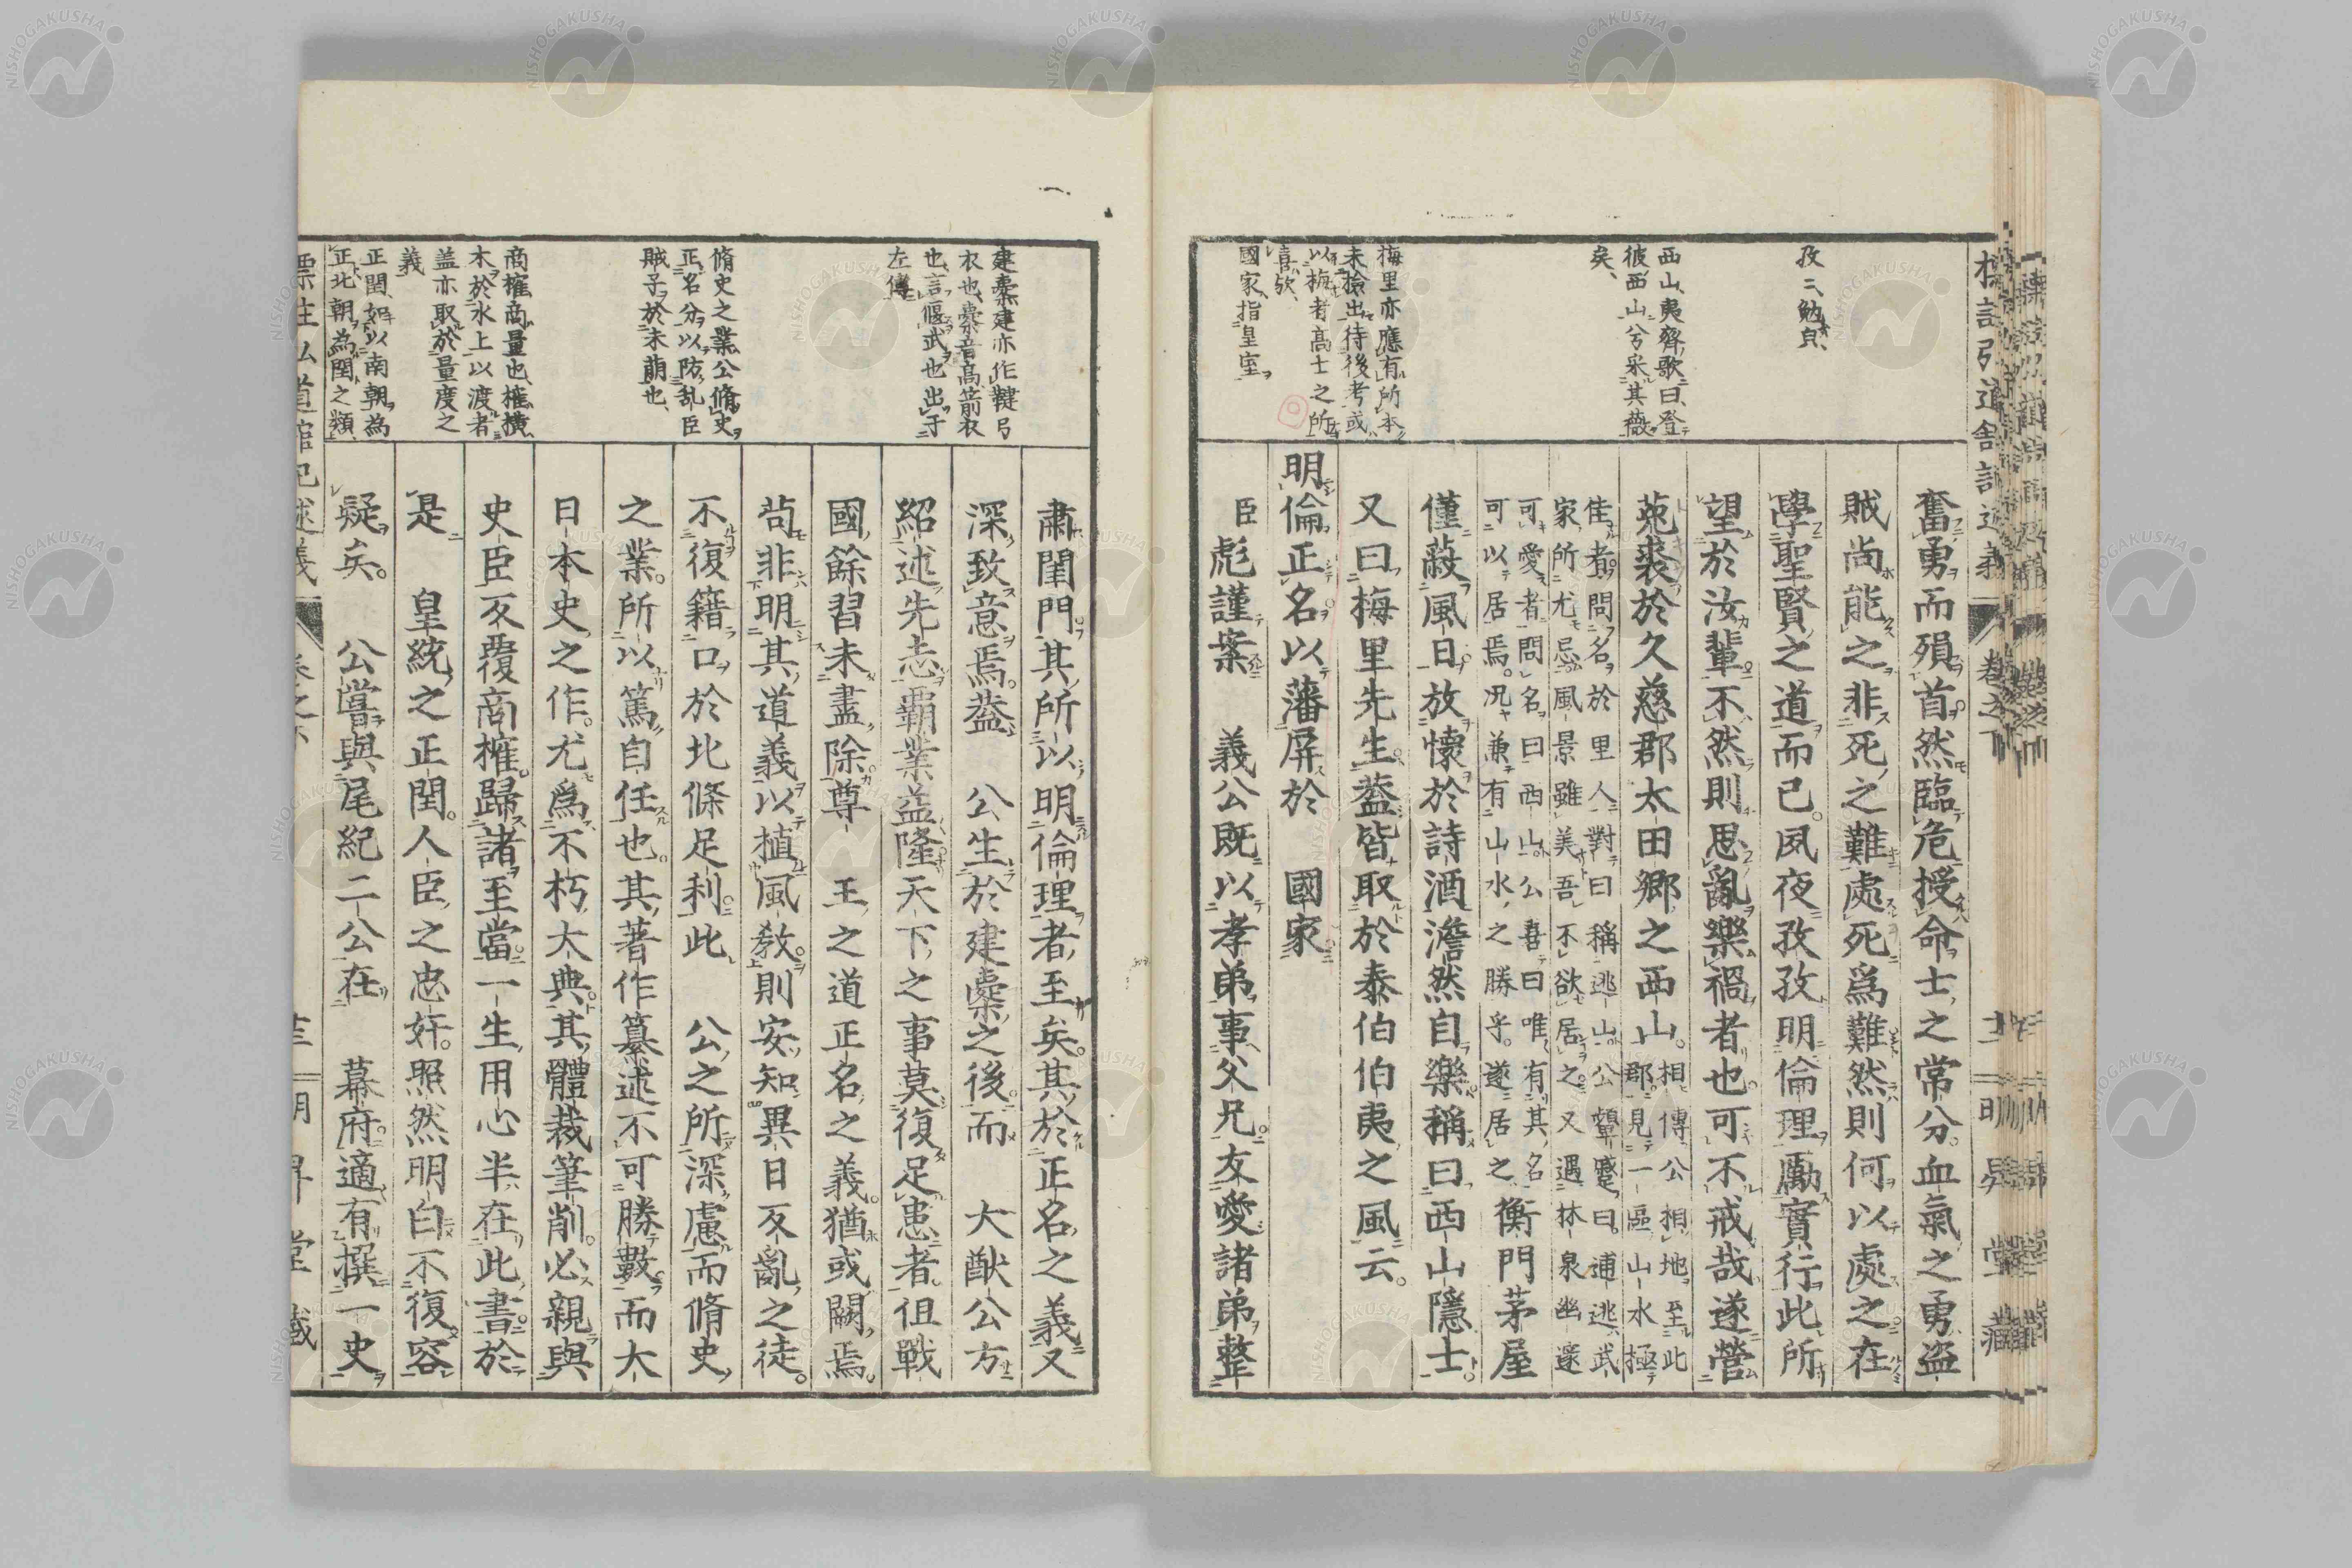 孜々勉皃、
西山、夷齊歌曰、登
彼西山兮采其薇
矣、
梅里亦應有所本
未撿出待後考或
以梅者高士之所
喜欤、
國家、指皇室、
奮勇而殞首然臨危授命士之常分。血氣之勇盜
賊尚能之非死之難處死爲難然則何以處之在
學聖賢之道而已。夙夜孜孜明倫理勵實行此所
望於汝輩。不然則思亂樂禍者也可不戒哉遂營
菟裘於久慈郡太田鄉之西山。相傳公相地至此
郡。見一區山水極
佳者。問名於里人對曰稱逃山。公顰蹙曰。逋逃武
家所尤忌。風景雖美吾不欲居之。又遇林泉幽邃
可愛者問名。曰西山。公喜曰唯有其名
可以居焉。況兼有山水之勝乎。遂居之
衡門茅屋
僅蔽風日。放懷於詩酒澹然自樂稱曰西山隱士。
又曰梅里先生。蓋皆取於泰伯伯夷之風云。
明倫正名。以藩屏於 國家
臣彪謹案 義公既以孝弟事父兄。友愛諸弟整
建櫜建亦作鞬弓
衣也、櫜音高、箭衣
也、言偃武也出于
左傳
脩史之業、公脩史
正名分以防乱臣
賊子於未萠也、
商榷、商量也、榷横
木於水上以渡者
盖亦取於量度之
義
正閏、如以南朝為
正北朝為閏之類、
肅閨門其所以明倫理者至矣。其於正名之義又
深致意焉。蓋 公生於建櫜之後。而 大猷公方
紹述先志霸業益隆天下之事莫復足患者。伹戰
國餘習未盡除。尊 王之道正名之義。猶或闕焉。
茍非明其道義以植風敎。則安知異日不亂之徒。
不復籍口於北條足利。此 公之所深慮而脩史
之業。所以篤自任也。其著作纂述不可勝數。而大
日本史之作。尤爲不朽大典。其體裁筆削。必親與
史臣反覆商榷。歸諸至當。一生用心半在此書。於
是 皇統之正閏。人臣之忠奸。照然明白。不復容
疑矣。 公嘗與尾紀二公在 幕府。適有撰一史